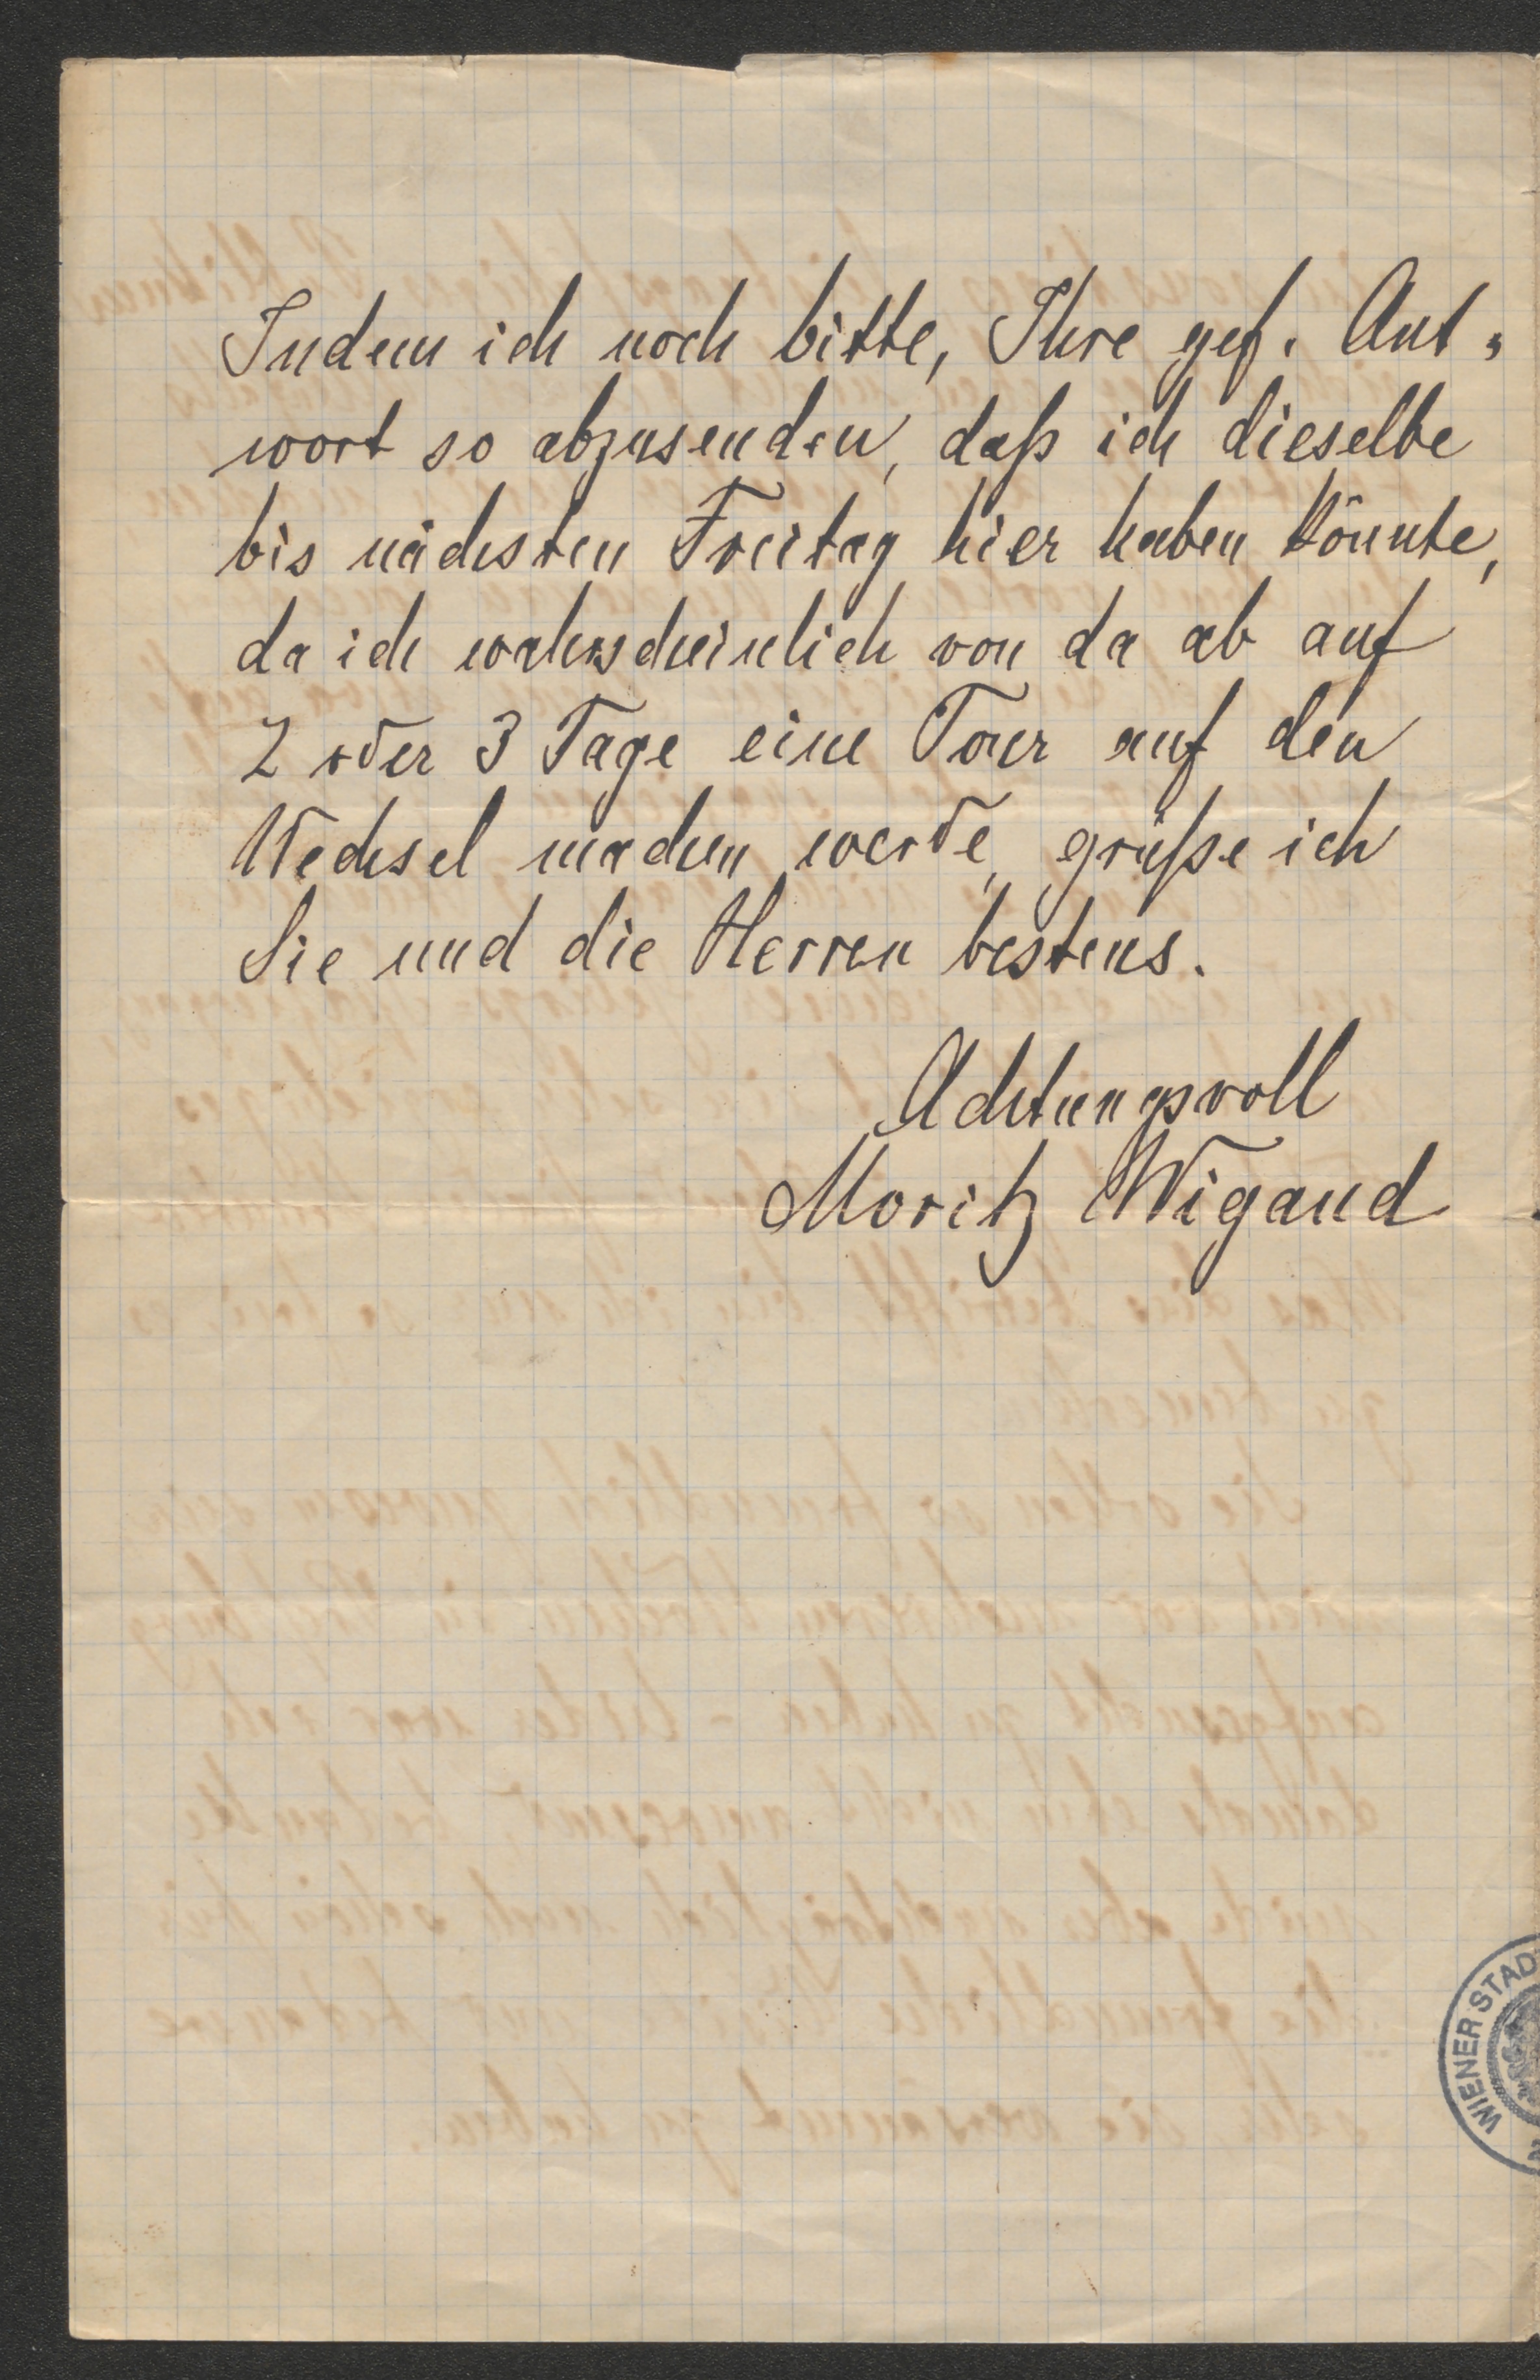 Indem ich noch bitte, Ihre gef. Ant-
wort so abzusenden, daß ich dieselbe
bis nächsten Freitag hier haben könnte,
da ich wahrscheinlich von da ab auf
2 oder 3 Tage eine Tour auf den
Wechsel machen werde, grüße ich
Sie und die Herren bestens.
Achtungsvoll
Moritz Wigand
WIENER STAD